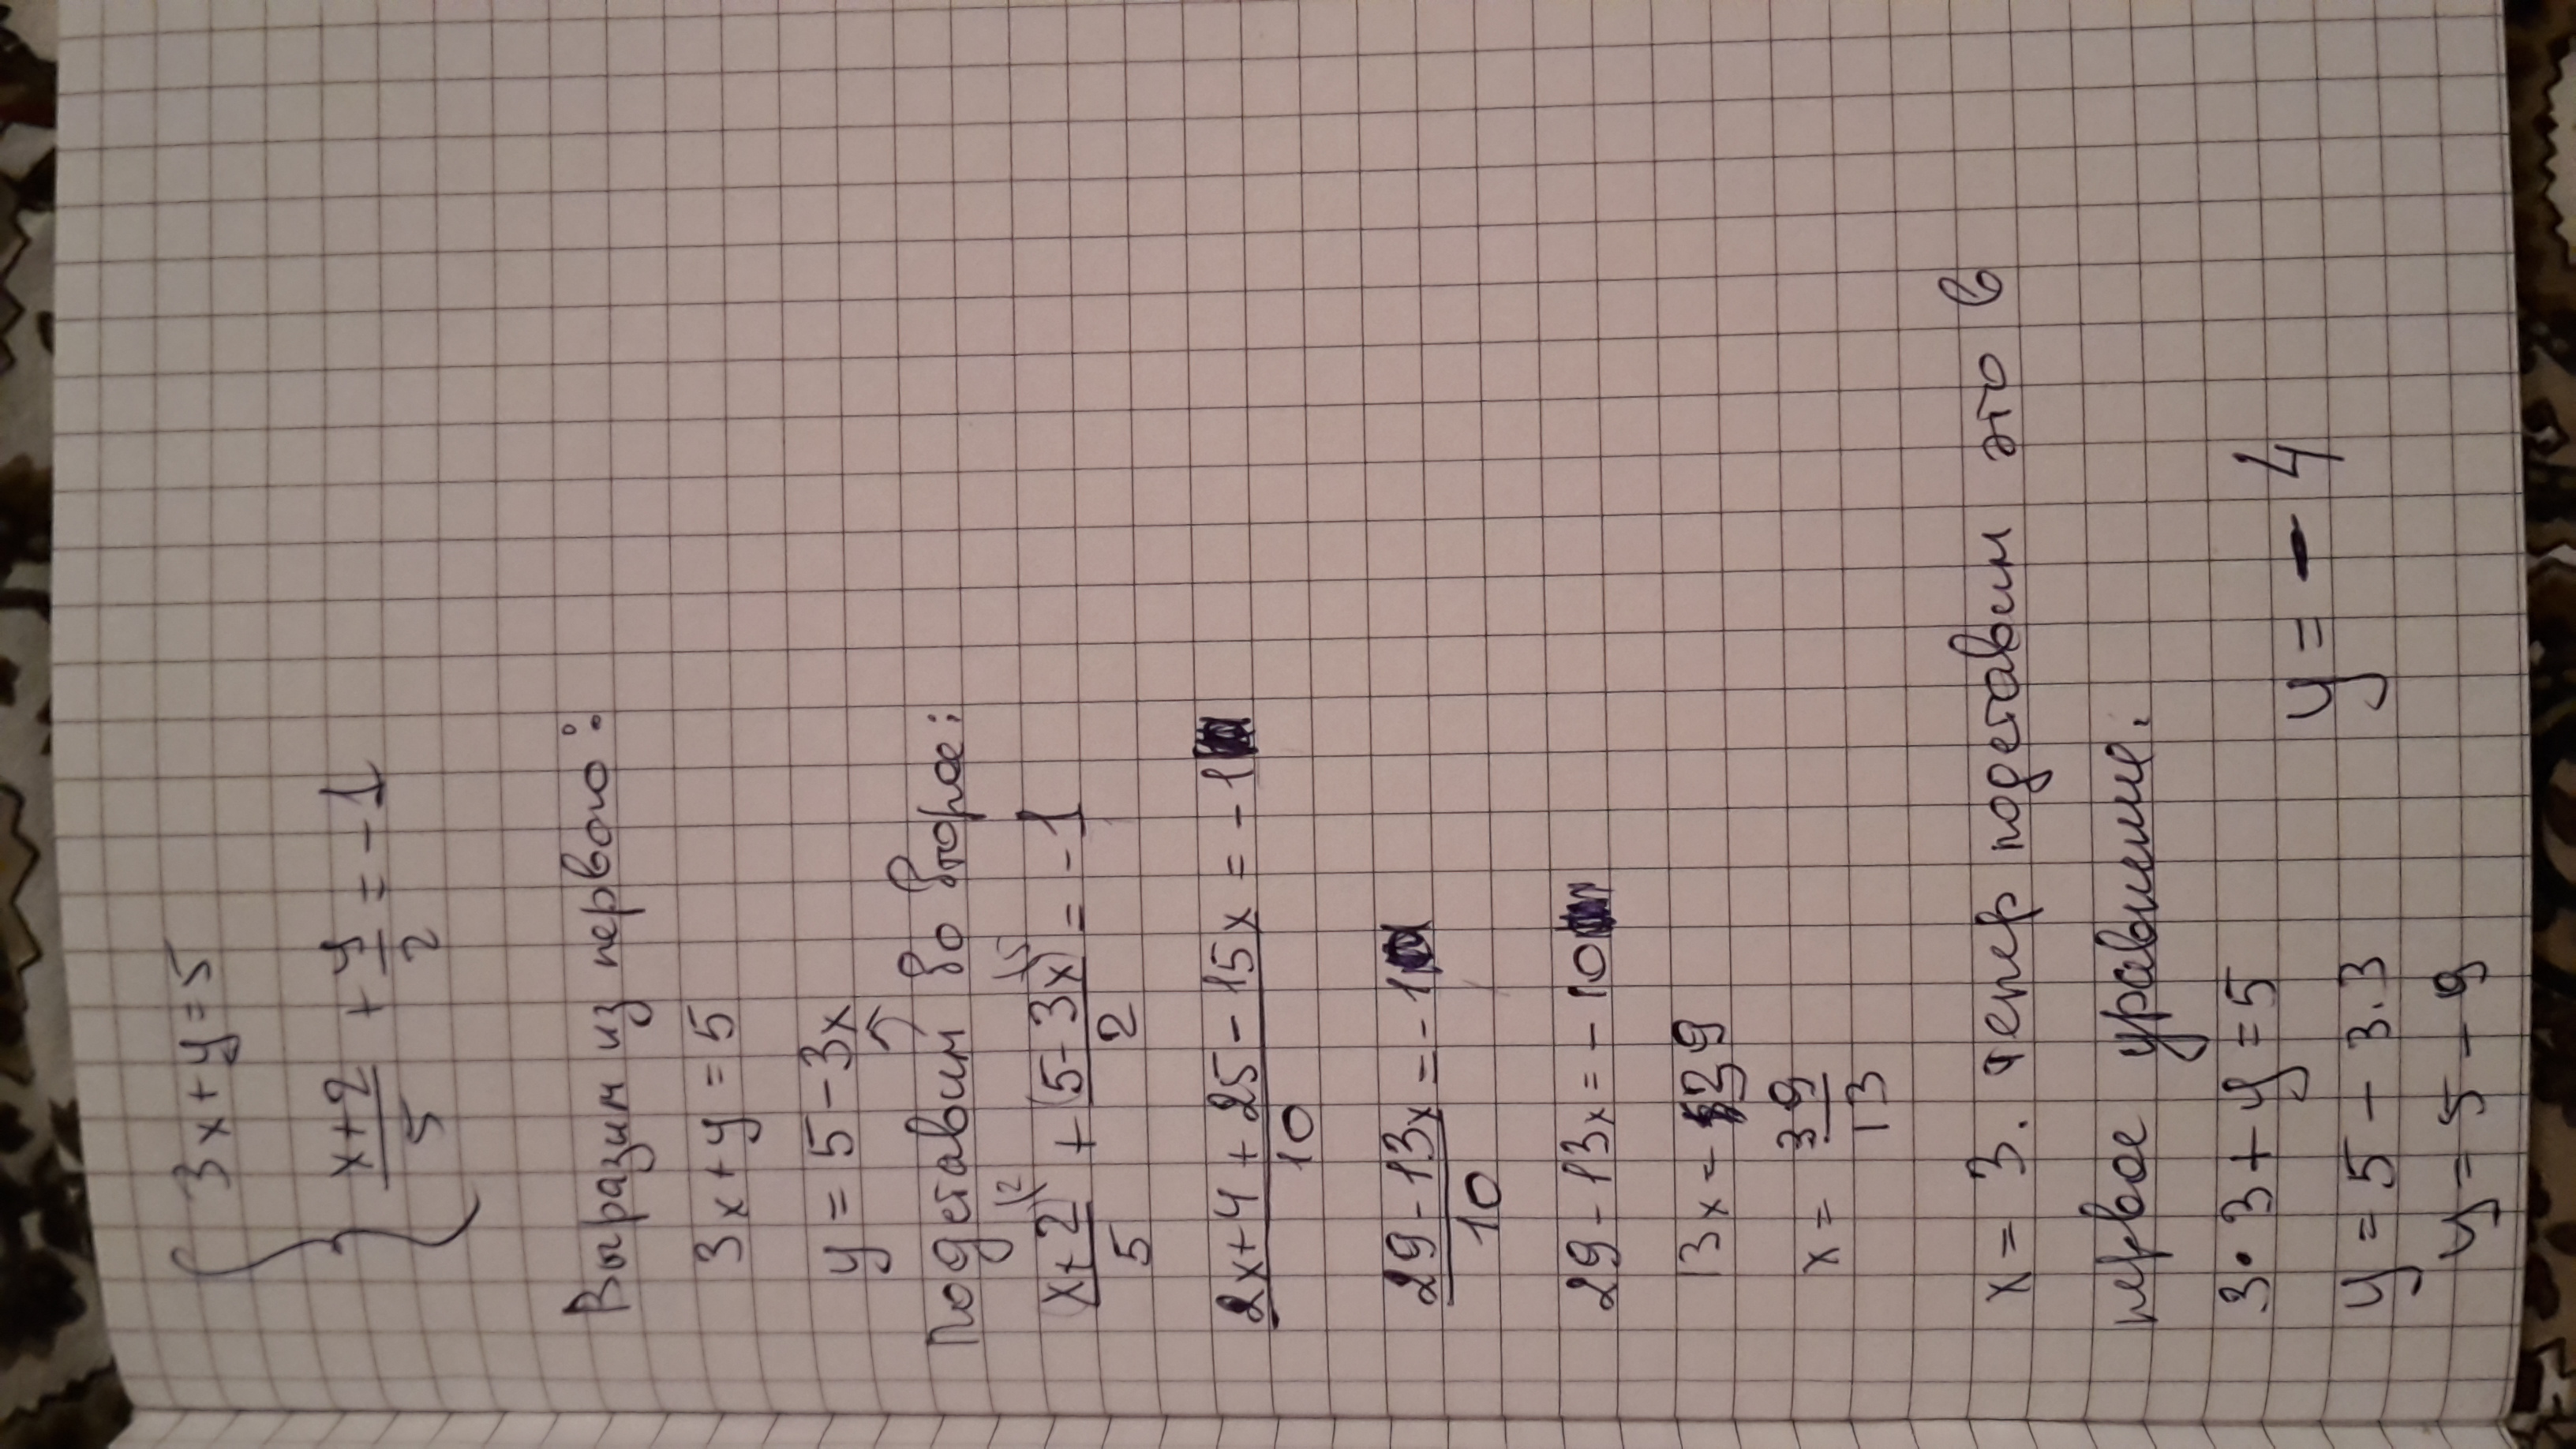 3x+y=5
x+2/5 + y/2 = -1
Выразим из первого:
3x+y=5
y=5-3x
Подставим во второе:
x+2/5 \2 + (5-3x)/2 \5 = -1
2x+4+25-15x/10 = -1
29-13x/10 = -1
29-13x=-10
13x - 39
x = 39/13
x=3. тепер подставим это в
первое уравнение.
3·3+y=5
y=5-3·3
y=5-9
y=-4